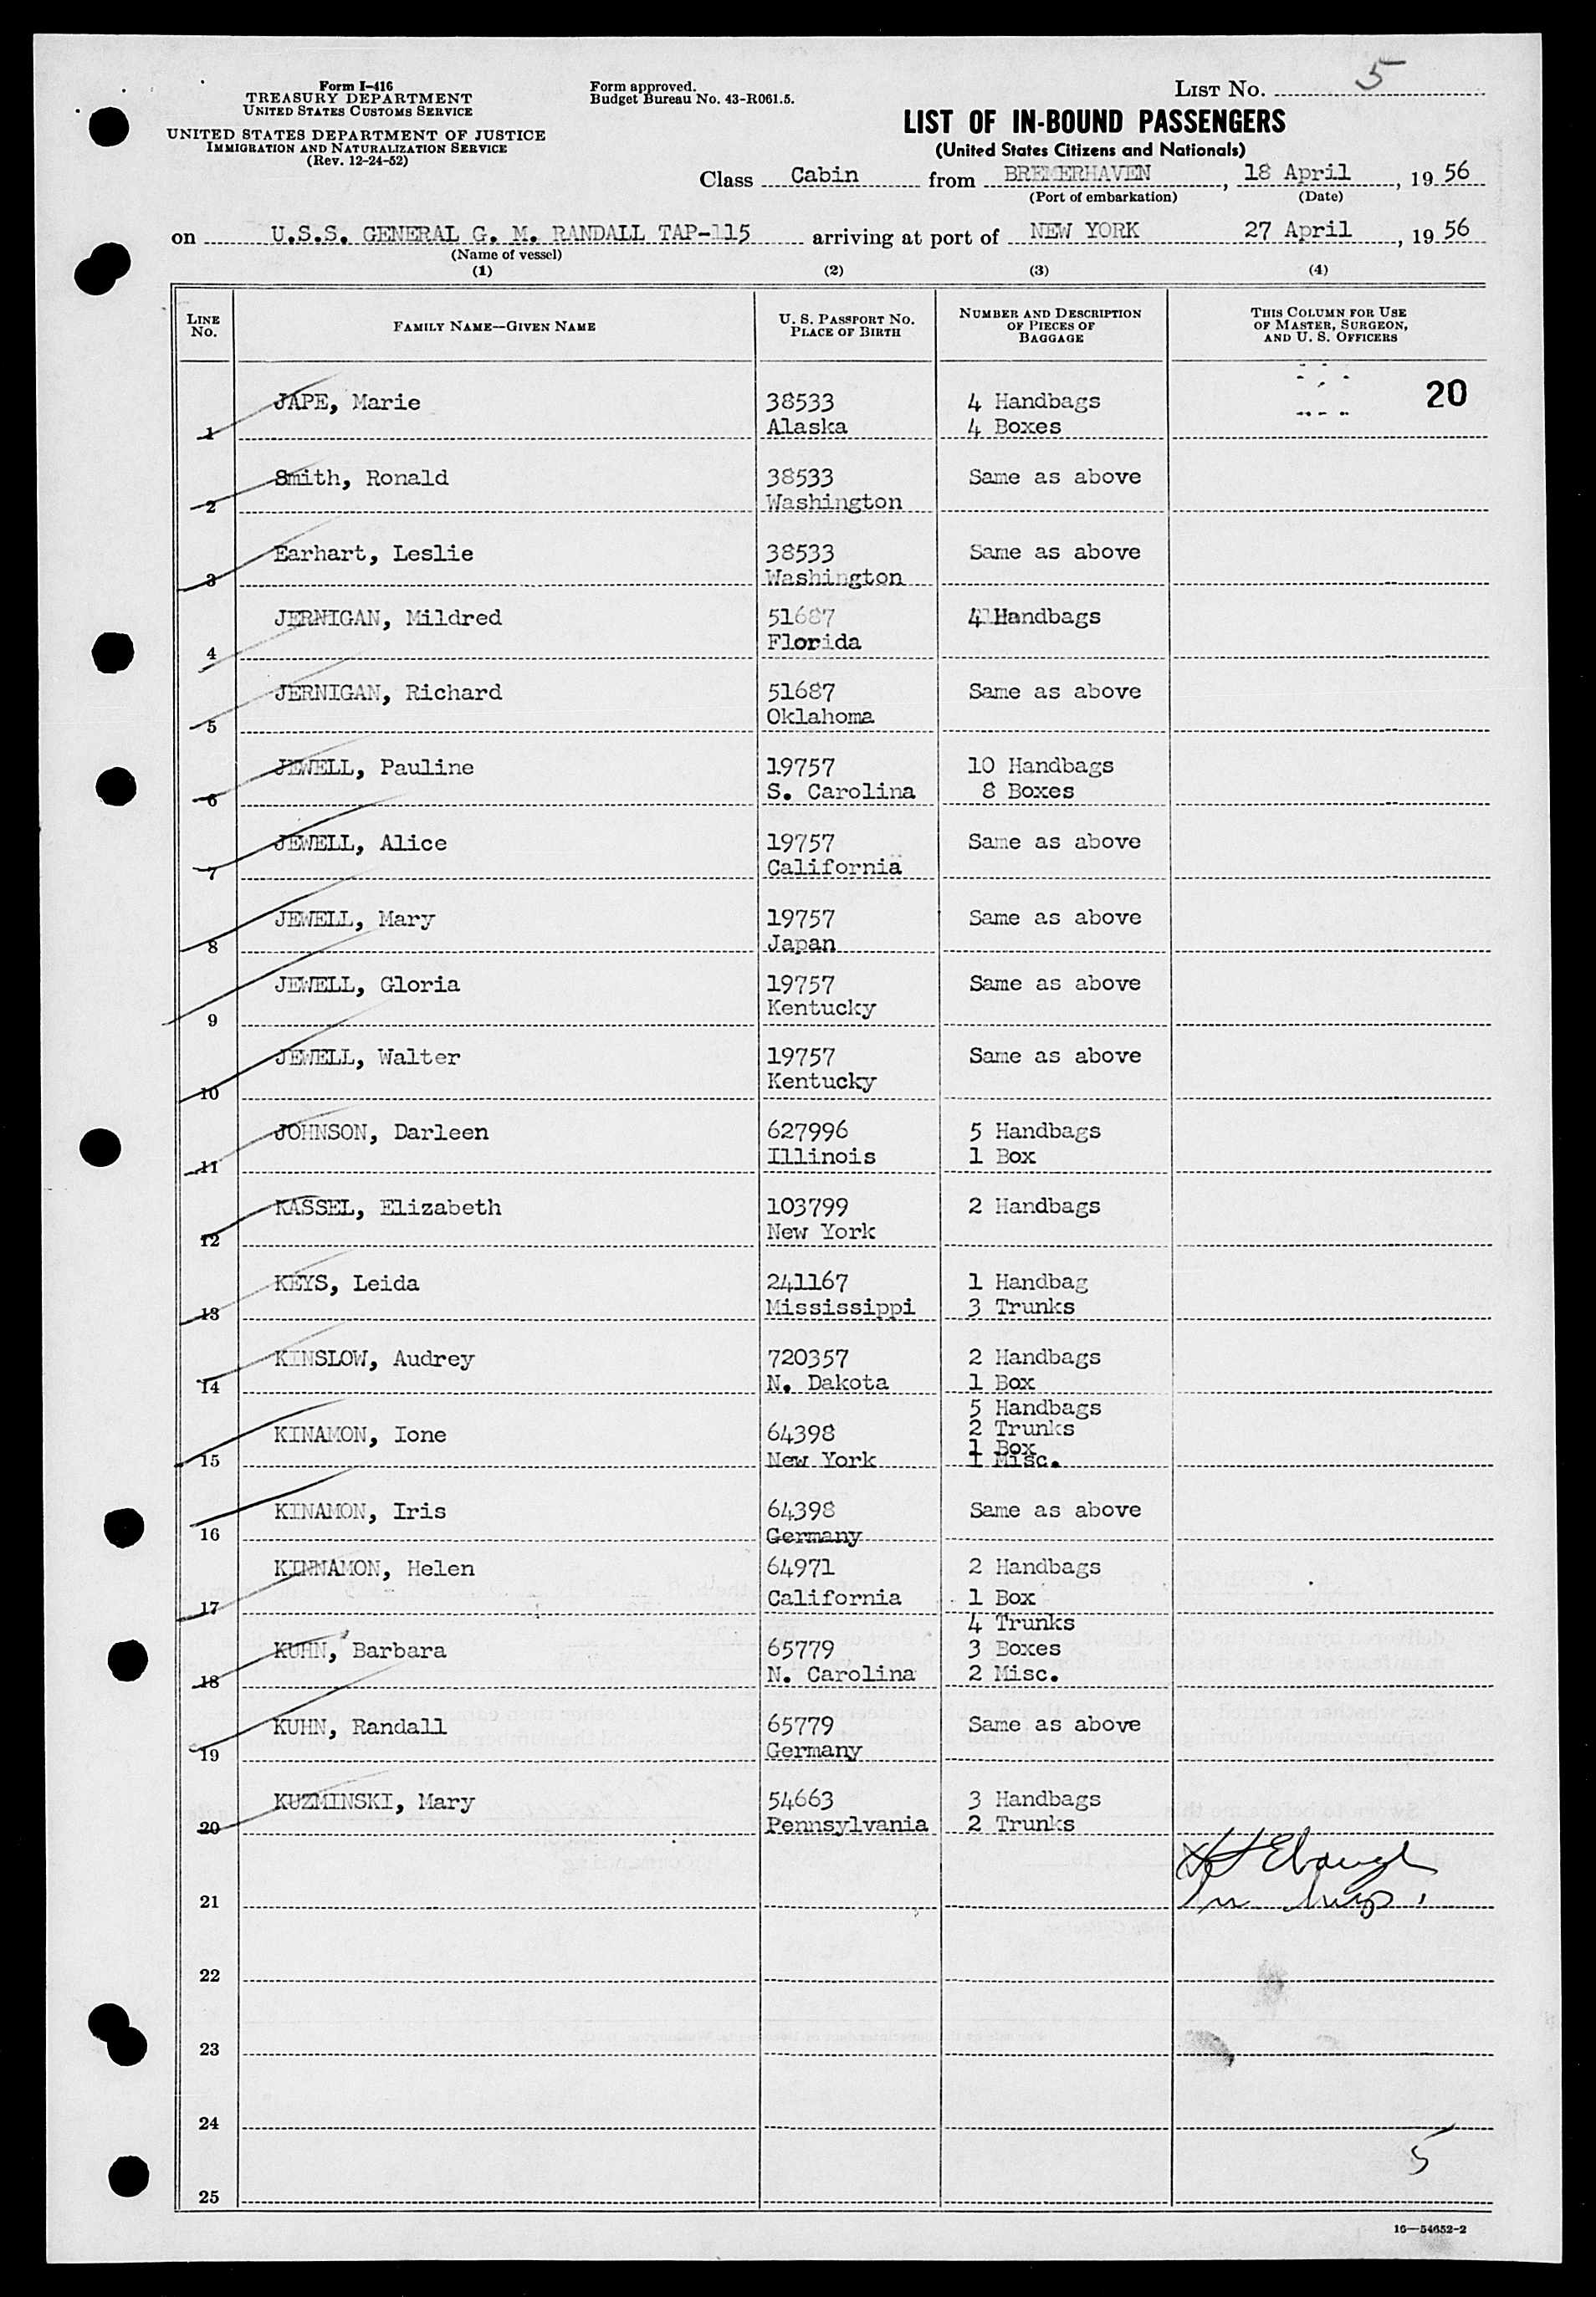 Form I-416
TREASURY DEPARTMENT
UNITED STATES CUSTOMS SERVICE
UNITED STATES DEPARTMENT OF JUSTICE
IMMIGRATION AND NATURALIZATION SERVICE
(Rev. 12-24-52)
Form approved.
Budget Bureau No. 43-R061.5.
LIST No. 5
LIST OF IN-BOUND PASSENGERS
(United States Citizens and Nationals)
Class Cabin from BREMERHAVEN, 18 April, 1956
(Port of embarkation) (Date)
on U.S.S. GENERAL G. M. RANDALL TAP-115 arriving at port of NEW YORK 27 April, 1956
(Name of vessel)
(1) (2) (3) (4)
LINE No. FAMILY NAME—GIVEN NAME U. S. PASSPORT No. PLACE OF BIRTH NUMBER AND DESCRIPTION OF PIECES OF BAGGAGE THIS COLUMN FOR USE OF MASTER, SURGEON, AND U. S. OFFICERS
20
1 JAPE, Marie 38533 4 Handbags
Alaska 4 Boxes
2 Smith, Ronald 38533 Same as above
Washington
3 Earhart, Leslie 38533 Same as above
Washington
4 JERNIGAN, Mildred 51687 4 Handbags
Florida
5 JERNIGAN, Richard 51687 Same as above
Oklahoma
6 JEWELL, Pauline 19757 10 Handbags
S. Carolina 8 Boxes
7 JEWELL, Alice 19757 Same as above
California
8 JEWELL, Mary 19757 Same as above
Japan
9 JEWELL, Gloria 19757 Same as above
Kentucky
10 JEWELL, Walter 19757 Same as above
Kentucky
11 JOHNSON, Darleen 627996 5 Handbags
Illinois 1 Box
12 KASSEL, Elizabeth 103799 2 Handbags
New York
13 KEYS, Leida 241167 1 Handbag
Mississippi 3 Trunks
14 KINSLOW, Audrey 720357 2 Handbags
N. Dakota 1 Box
5 Handbags
2 Trunks
15 KINAMON, Ione 64398 1 Box
New York 1 Misc.
16 KINAMON, Iris 64398 Same as above
Germany
17 KINNAMON, Helen 64971 2 Handbags
California 1 Box
4 Trunks
18 KUHN, Barbara 65779 3 Boxes
N. Carolina 2 Misc.
19 KUHN, Randall 65779 Same as above
Germany
20 KUZMINSKI, Mary 54663 3 Handbags
Pennsylvania 2 Trunks
21
22
23
24
5
25
16—54652-2